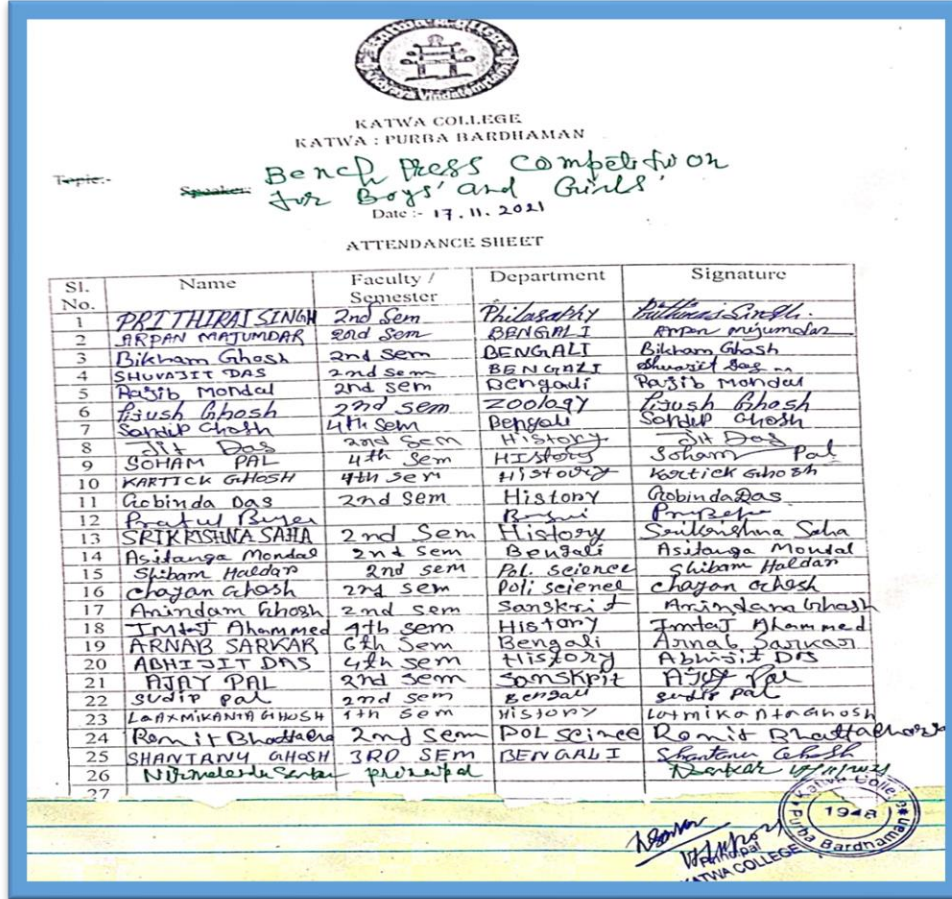 KATWA COLLEGE
KATWA : PURBA BARDHAMAN
Topic:- Bench Press Competition
Speaker: for Boys' and Girls'
Date :- 17.11.2021
ATTENDANCE SHEET
Sl. No. Name Faculty / Semester Department Signature
1 PRITHIRAJ SINGH 2nd Sem Philosophy Prithiraj Singh.
2 ARPAN MAJUMDAR 2nd Sem BENGALI Arpan Majumdar
3 Bikham Ghosh 2nd Sem BENGALI Bikham Ghosh
4 SHUVAJIT DAS 2nd Sem BENGALI Shuvajit Das
5 Rajib Mondal 2nd Sem Bengali Rajib Mondal
6 Pijush Ghosh 2nd Sem Zoology Pijush Ghosh
7 Sandip Ghosh 4th Sem Bengali Sandip Ghosh
8 Jit Das 2nd Sem History Jit Das
9 SOHAM PAL 4th Sem History Soham Pal
10 KARTICK GHOSH 4th Sem History Kartick Ghosh
11 Gobinda Das 2nd Sem History Gobinda Das
12 Pratul
13 SRIKRISHNA SAHA 2nd Sem History Srikrishna Saha
14 Asitanga Mondal 2nd Sem Bengali Asitanga Mondal
15 Shibam Haldar 2nd Sem Pol. Science Shibam Haldar
16 Chayan Ghosh 2nd Sem Poli science Chayan Ghosh
17 Anindam Ghosh 2nd Sem Sanskrit Anindam Ghosh
18 Imtaj Ahammed 4th Sem History Imtaj Ahammed
19 ARNAB SARKAR 6th Sem Bengali Arnab Sarkar
20 ABHIJIT DAS 4th Sem History Abhijit Das
21 AJAY PAL 2nd Sem Sanskrit Ajay Pal
22 Sudip Pal 2nd Sem Bengali Sudip Pal
23 LAAXMIKANTA GHOSH Sem History Latmikanta Ghosh
24 Romit Bhattacha 2nd Sem Pol Scince Romit Bhattacharya
25 SHANTANU GHOSH 3RD SEM BENGALI Shantanu Ghosh
26 Nirmalendu Sarkar principal NSarkar
27
Katwa College
1948
Purba Bardhaman
Principal
KATWA COLLEGE